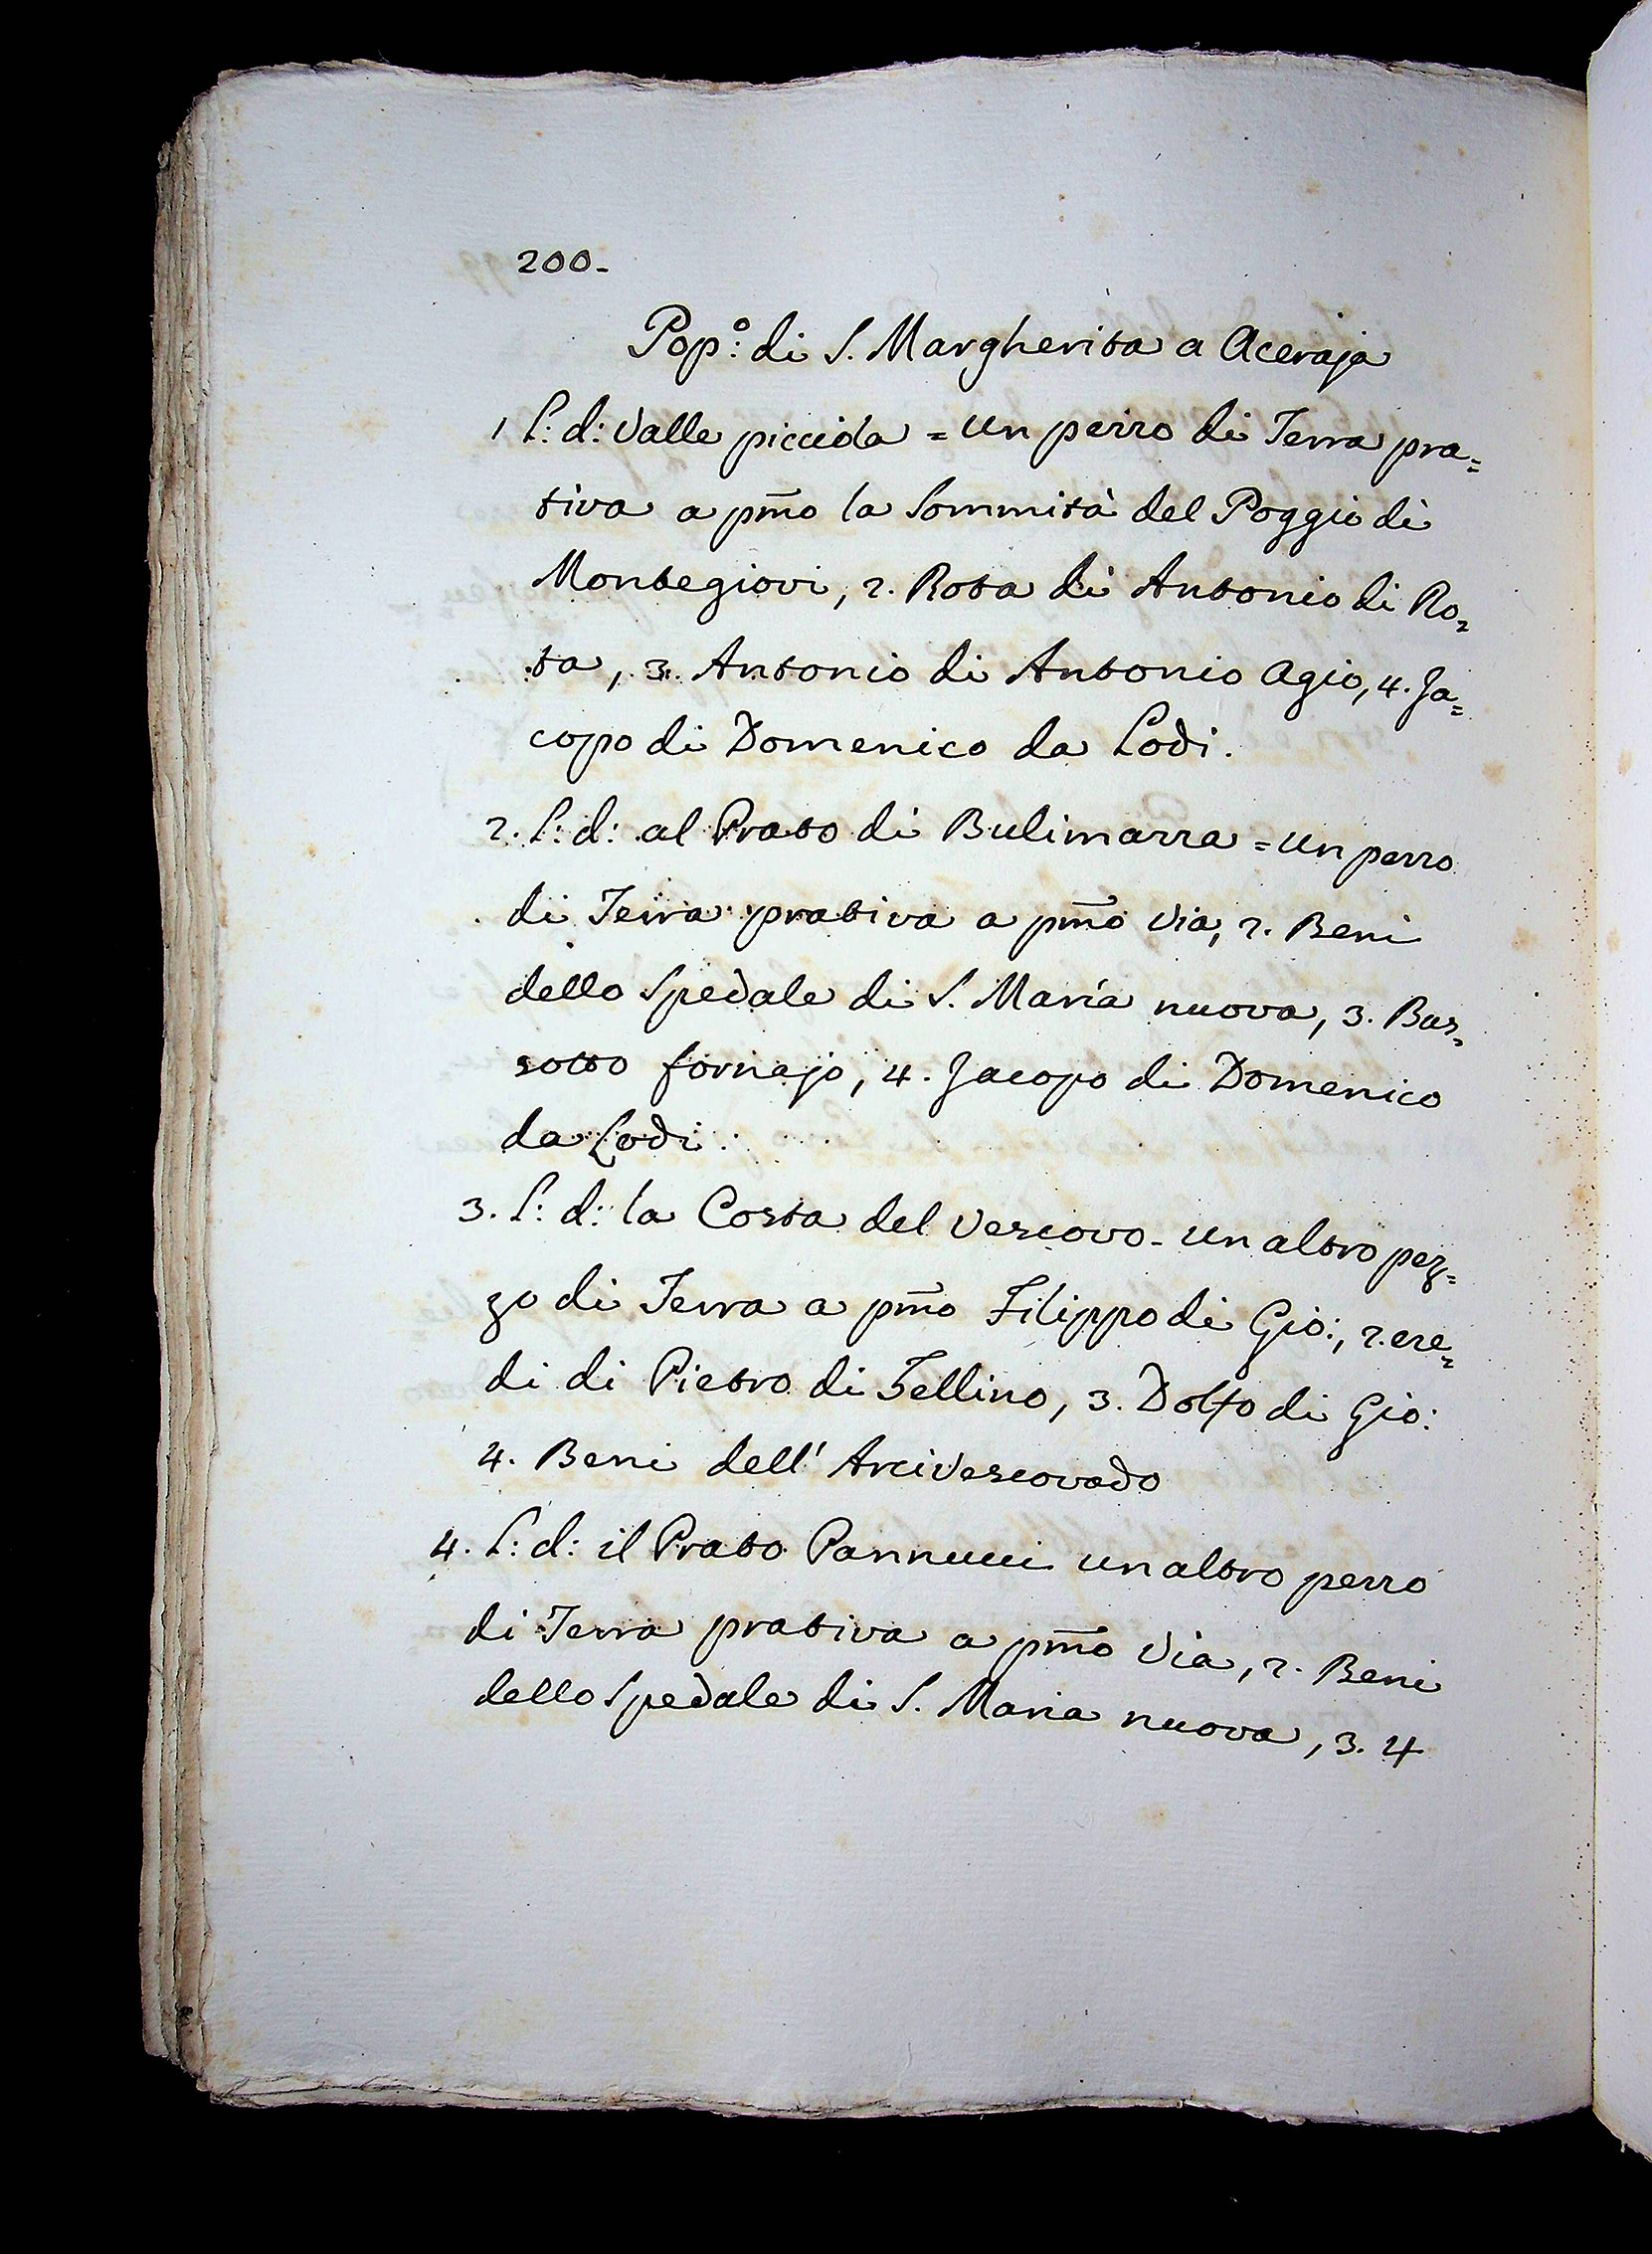 200.
Pop:º di S. Margherita a Aceraja
1 L: d: Valle piccida = un pezzo di Terra pra=
tiva a pm̄o la Sommità del Poggio di
Montegiovi, 2. Rota di Antonio di Ro=
ta, 3. Antonio di Antonio Agio, 4. Ja=
copo di Domenico da Lodi.
2. L: d: al Prato di Bulimazza = un pezzo
di Terra prativa a pm̄o Via, 2. Beni
dello Spedale di S. Maria nuova, 3. Buz=
zotto fornajo, 4. Jacopo di Domenico
da Lodi.
3. L: d: la Costa del Vescovo - un altro pez=
zo di Terra a pm̄o Filippo di Gio:, 2. ere=
di di Pietro di Tellino, 3. Dolfo di Gio:
4. Beni dell' Arcivescovado
4. L: d: il Prato Pannucci un altro pezzo
di Terra prativa a pm̄o Via, 2. Beni
dello Spedale di S. Maria nuova, 3. 4